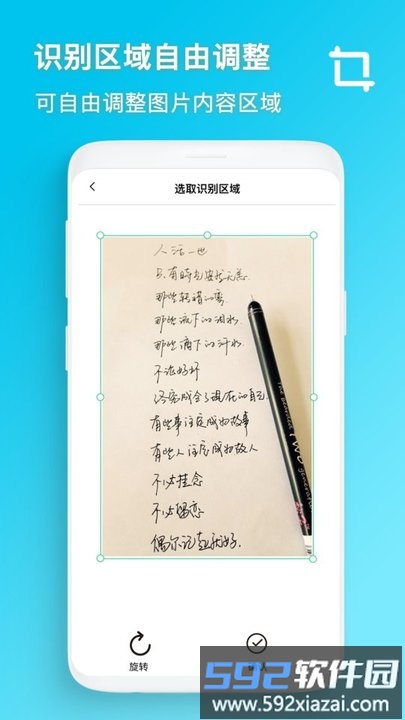 识别区域自由调整
可自由调整图片内容区域
选取识别区域
人活一世
只有時光安然无恙
那些转错的弯
那些流下的泪水
那些滴下的汗水
不论好坏
都完成全了现在的自己
有些事注定成为故事
有些人注定成为故人
不必挂念
不必留恋
偶尔记起就好
旋转
592软件园
www.592xiazai.com